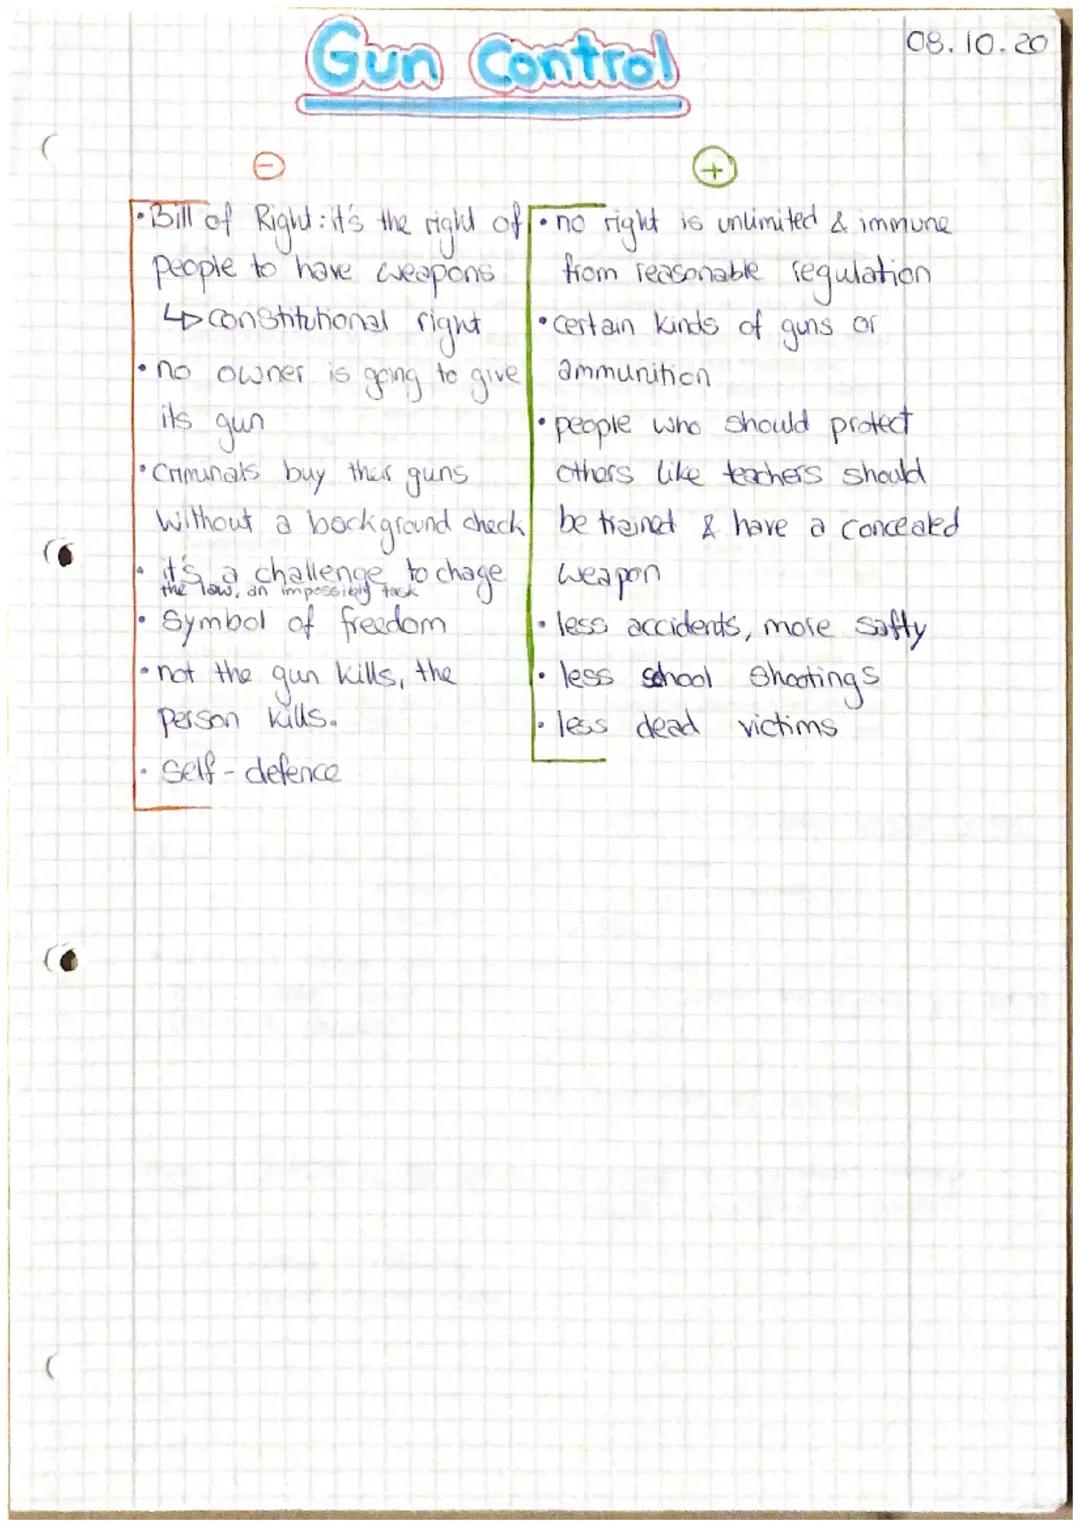 Gun Control
08.10.20
-
+
• Bill of Right: it's the right of
people to have weapons
↳ constitutional right
• no owner is going to give
its gun
• Criminals buy their guns
without a background check
• it's a challenge to chage
the law, an impossibly task
• Symbol of freedom
• not the gun kills, the
person kills.
• Self-defence
• no right is unlimited & immune
from reasonable regulation
• certain kinds of guns or
ammunition
• people who should protect
others like teachers should
be trained & have a concealed
weapon
• less accidents, more safty
• less school shootings
• less dead victims